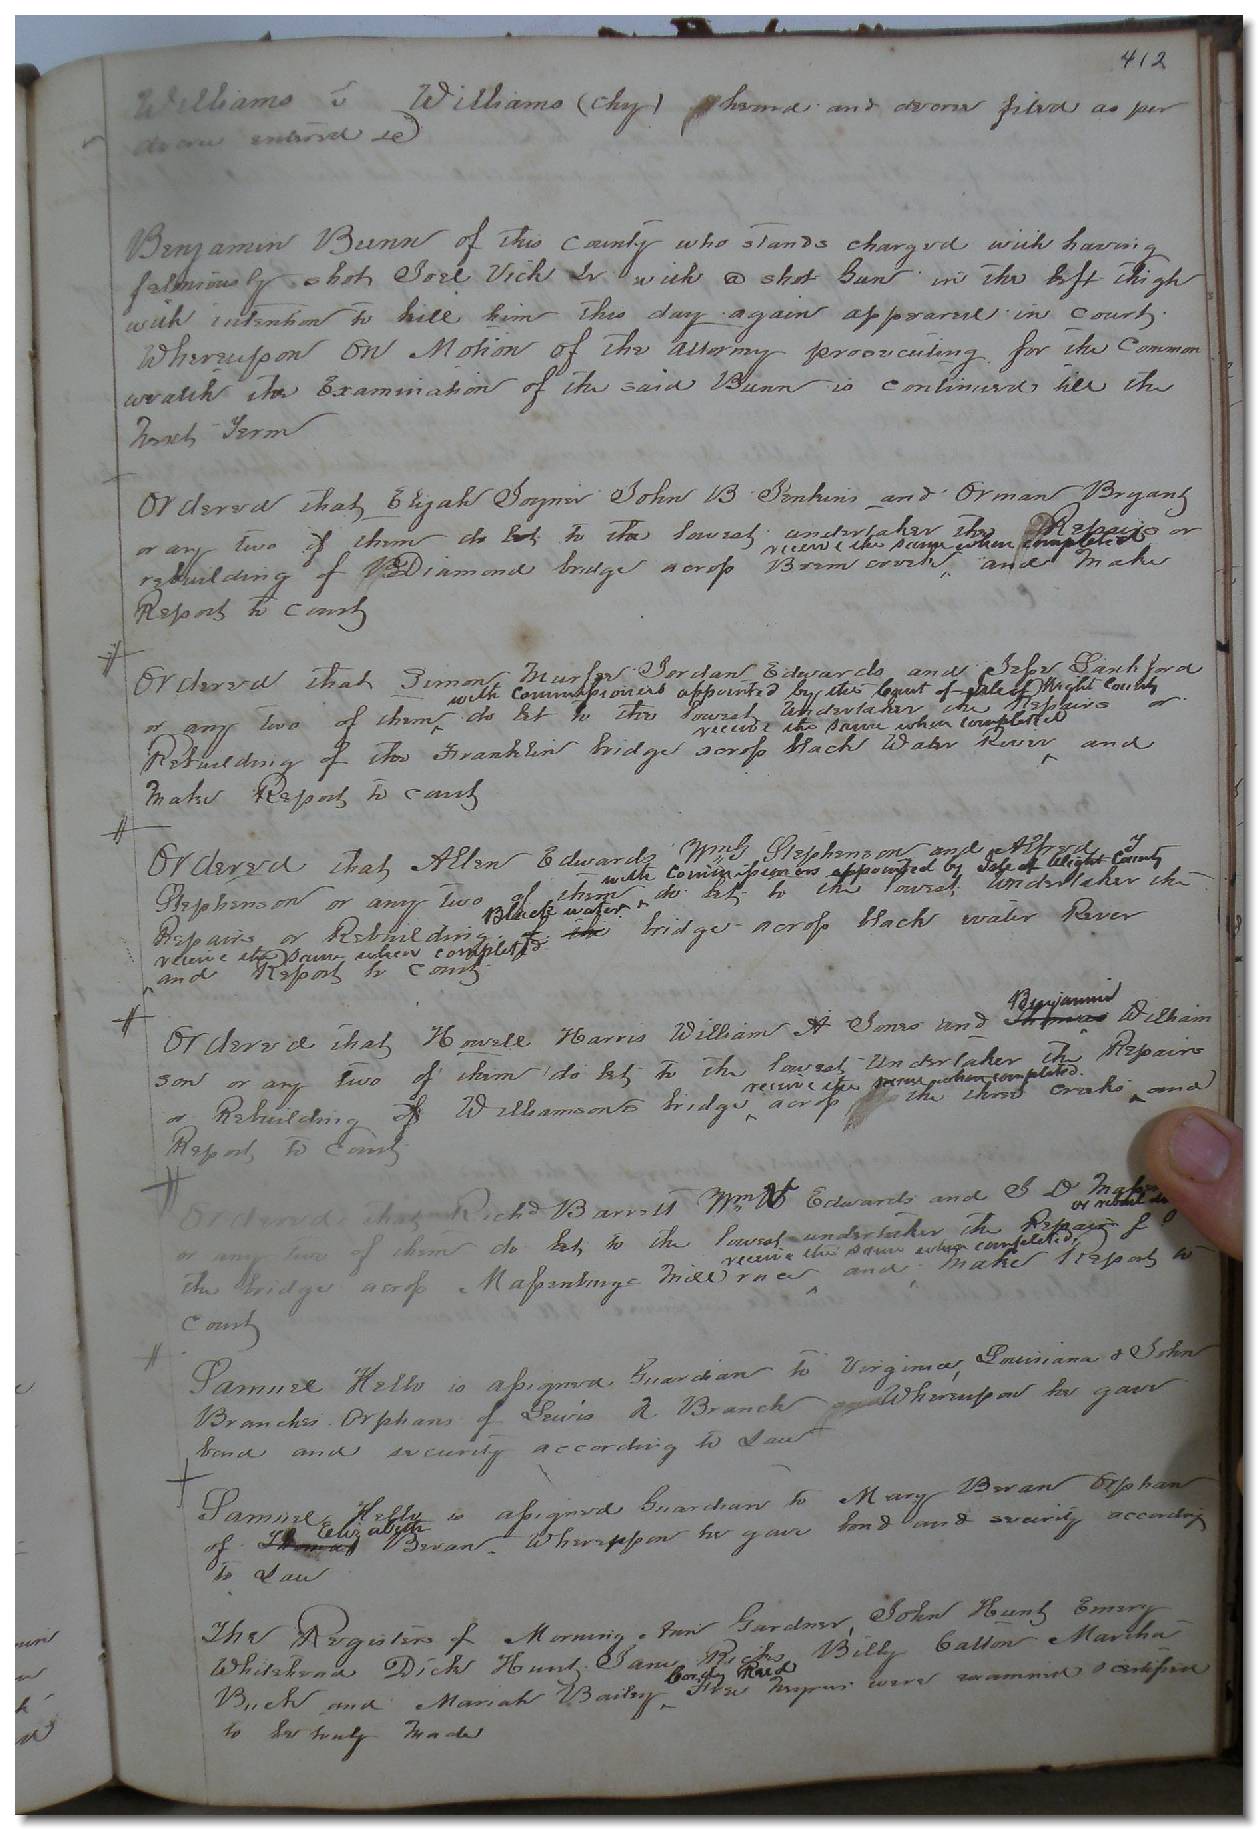 412
Williams v Williams (Chy) heard and decree filed as per
decree entered &c
Benjamin Bunn of this County who stands charged with having
feloniously shot Joel Vick Sr with a shot Gun in the left thigh
with intention to kill him this day again appeared in Court.
Whereupon On Motion of the attorney prosecuting for the Common
wealth the Examination of the said Bunn is continued till the
Next Term
Ordered that Elijah Joyner John B Jenkins and Orman Bryant
or any two of them do let to the lowest undertaker the Repairs or
receive the same when completed
rebuilding of Diamond bridge across Brom creek ^ and make
Report to Court
Ordered that Simon Murfee Jordan Edwards and Jesse Lankford
with Commissioners appointed by the Court of Isle of Wight County
or any two of them ^ do let to the lowest Undertaker the Repairs or
receive the same when completed
Rebuilding of the Franklin bridge across black Water River ^ and
make Report to court
Ordered that Allen Edwards Wm G Stephenson and Alfred T
with Commissioners appointed by Isle of Wight County
Stephenson or any two of them ^ do let to the lowest Undertaker the
Black water
Repairs or Rebuilding of the bridge across black water River
receive the same when completed
^ and Report to Court
Benjamin
Ordered that Howell Harris William A Jones and Thomas William
son or any two of them do let to the lowest Undertaker the Repairs
receive the same when completed
or Rebuilding of Williamsons bridge ^ across the three creeks ^ and
Report to Court
Ordered that Richd Barrett Wm N Edwards and J D
or
or any two of them do let to the lowest undertaker the Repairs of
receive the same when completed
the bridge across Massenburgs Mill race ^ and make Report to
Court
Samuel Kello is assigned Guardian to Virginia, Louisiana & John
Branches Orphans of Lewis R Branch Whereupon he gave
bond and security according to Law
Samuel Kello is assigned Guardian to Mary Bevan Orphan
Elizabeth
of Thomas Bevan. Whereupon he gave bond and security according
to Law
The Registers of Morning, Ann Gardner, John Hunt Emery
Whitehead Dick Hunt Sam Ricks Billy Catton Martha
Candy Reed
Buck and Mariah Bailey ^ Free Negroes were examined & certified
to be truly made